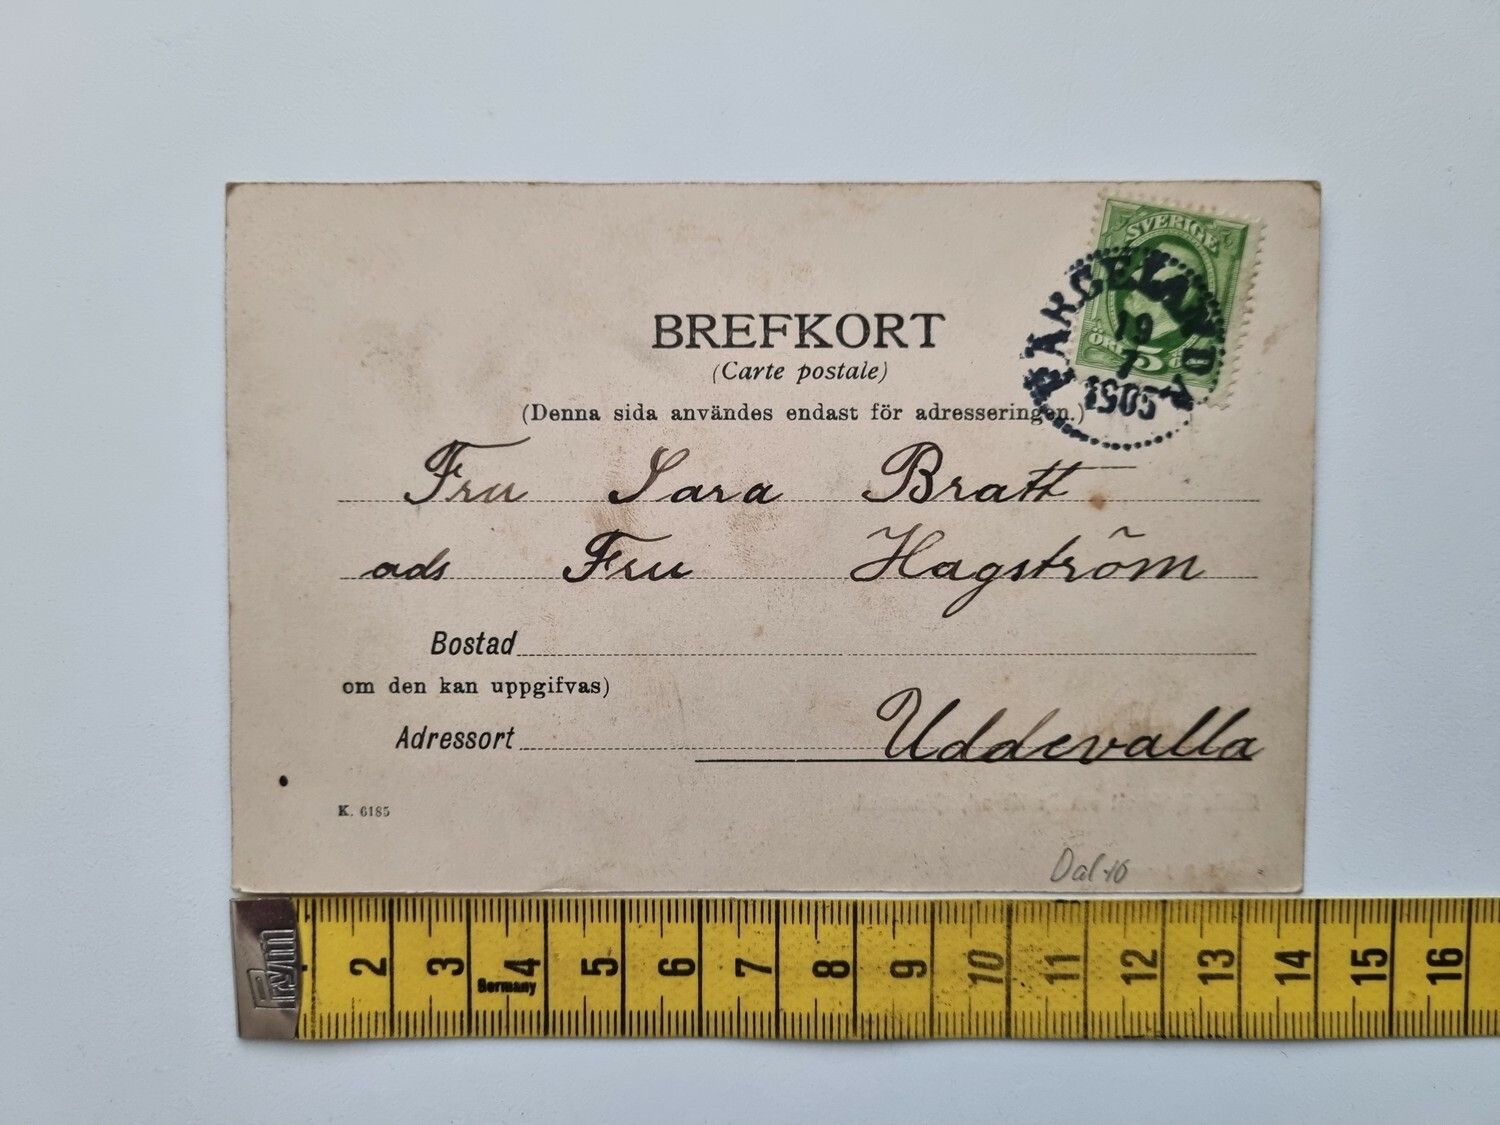 SVERIGE
ÖRE 5
FÄRGELANDA
19
7
1905
BREFKORT
(Carte postale)
(Denna sida användes endast för adresseringen.)
Fru Sara Bratt
ads Fru Hagström
Bostad
om den kan uppgifvas)
Adressort Uddevalla
K. 6185
Dal 10
Prym
2 3 4 5 6 7 8 9 10 11 12 13 14 15 16
Germany